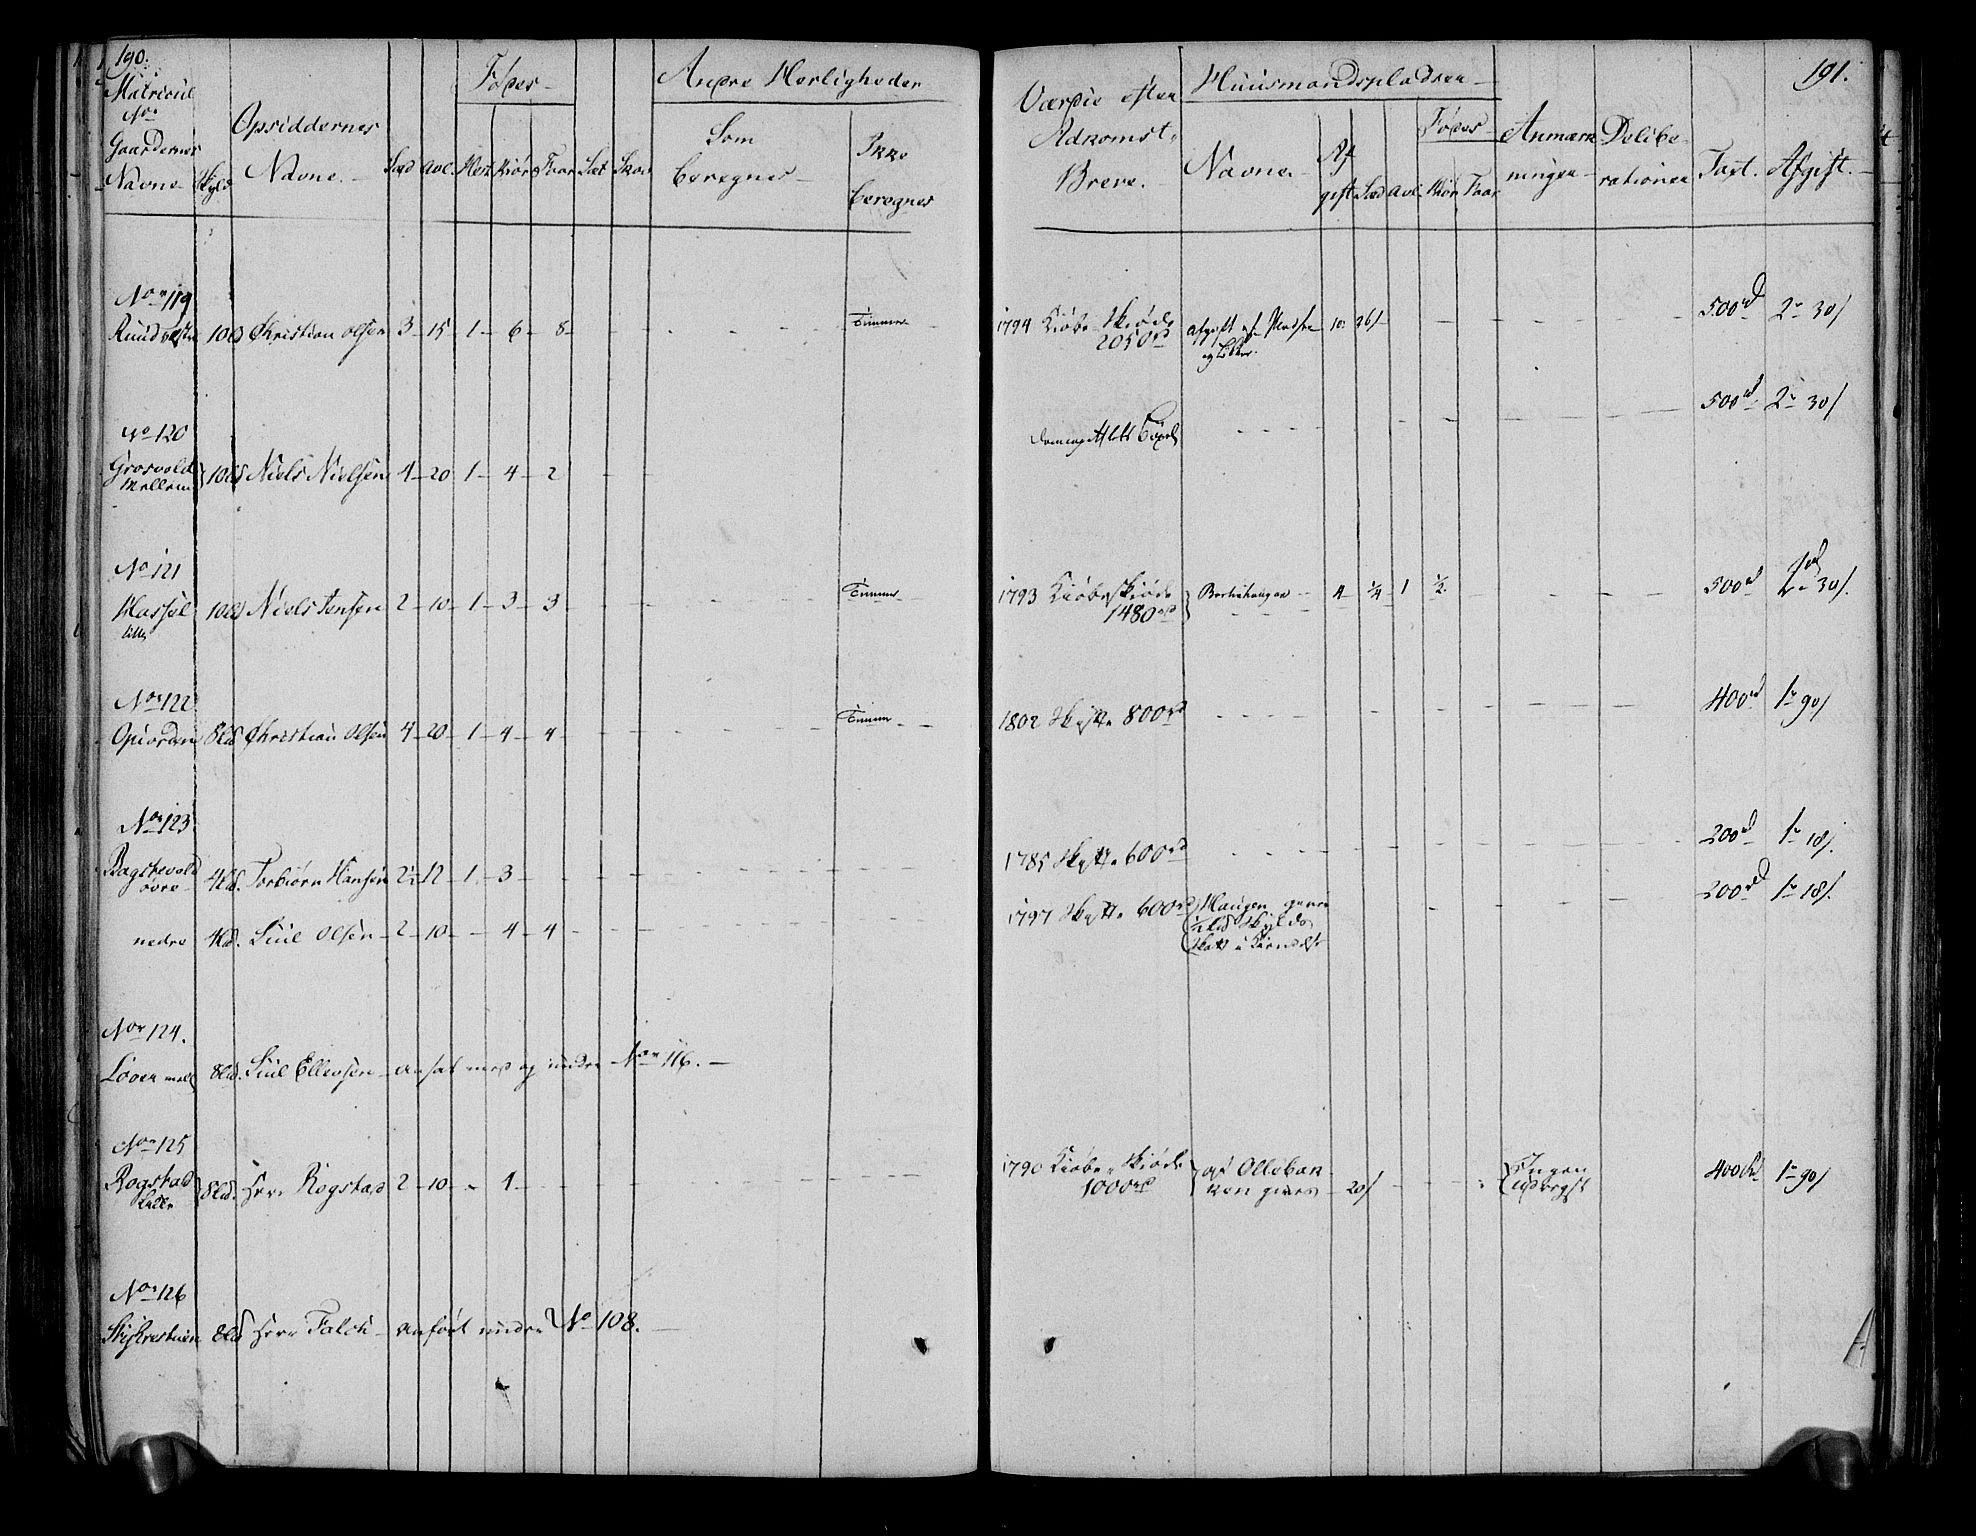 190.
Matricul
No
Gaardernes
Navne
Skyld
Opsiddernes
Navne
Sæd
Avl.
Føder
Hest
Kiör
Faar
Sæt
Skov
Andre Herligheder
Som
beregnes
Ikke
beregnes
No 119
Ruud 10 Christian Olsen 3 - 15 - 1 - 6 - 8 - Timmer
No 120
Grosvold
Mellem 10 Niels Nielsen 4 - 20 1 - 4 - 2
No 121
Hassel
lille 10 Niels Jensen 2 - 10 - 1 - 3 - 3 Timmer
No 122
Opiorden 8 Christian Olsen 4 - 20 - 1 - 4 - 4 Timmer
No 123
Bagstevold
øvre 4 Torbiørn Hansen 2½ 12 - 1 - 3
nedre 4 Siul Olsen - 2 - 10 - - 4 - 4
No 124.
Loven 8 Siul Ellevsen - ansat med og under - No 116. -
No 125
Rogstad
Lille 8 Herr Rogstad 2 - 10 - - 1 -
No 126
8 Herr Falck - anført under No 108. -
191.
Værdie efter
Adkomst-
Breve.
Huusmandspladsen
Navne
Af
gift
Sæd
Avl.
Føder
Kiör
Faar
Anmærk
ningen
Delibe-
rationer
Taxt.
Afgift.
1794 Kiøbe Skiøde
2050 rd Afgift af 10 26/
500 rd 2 - 30/
500 rd 2 - 30/
1793 Kiøbeskiøde
1480 rd - 4 - ¼ 1 ½ 500 rd 2 - 30/
1802 Skiøtte 800 rd 400 rd 1 - 90/
1785 Skiøtte 600 rd 200 rd 1 - 18/.
1797 Skiøtte 600 rd Haugen giver 200 rd 1 - 18/.
Skyld
1790 Kiøbe Skiøde
1000 rd af Ollebak
ken gives - 20/ Ingen 400 rd 1 - 90/